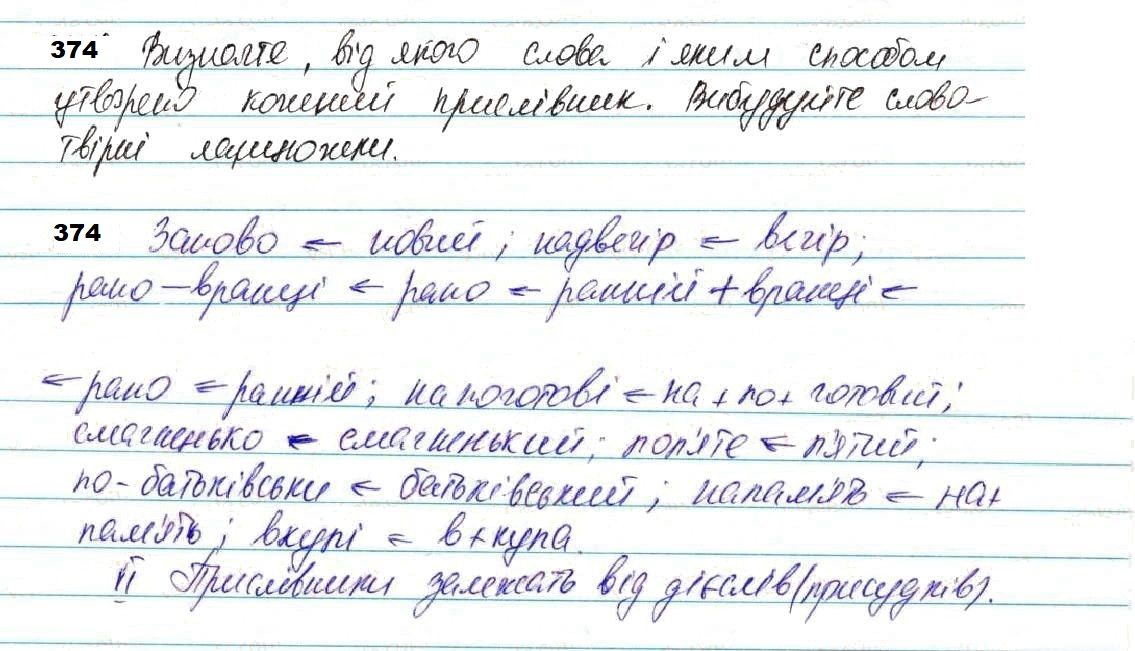 374 Визначте, від якого слова і яким способом
утворено кожний прислівник. Вибудуйте слово-
твірні ланцюжки.
374 Заново ← новий; надвечір ← вечір;
рано-вранці ← рано ← ранній + вранці ←
← рано ← ранній; напоготові ← на + по + готовий;
смачненько ← смачненький; поп'яте ← п'ятий;
по-батьківськи ← батьківський; напам'ять ← на+
пам'ять; вкупі ← в+купа.
II Прислівники залежать від дієслів (присудків).